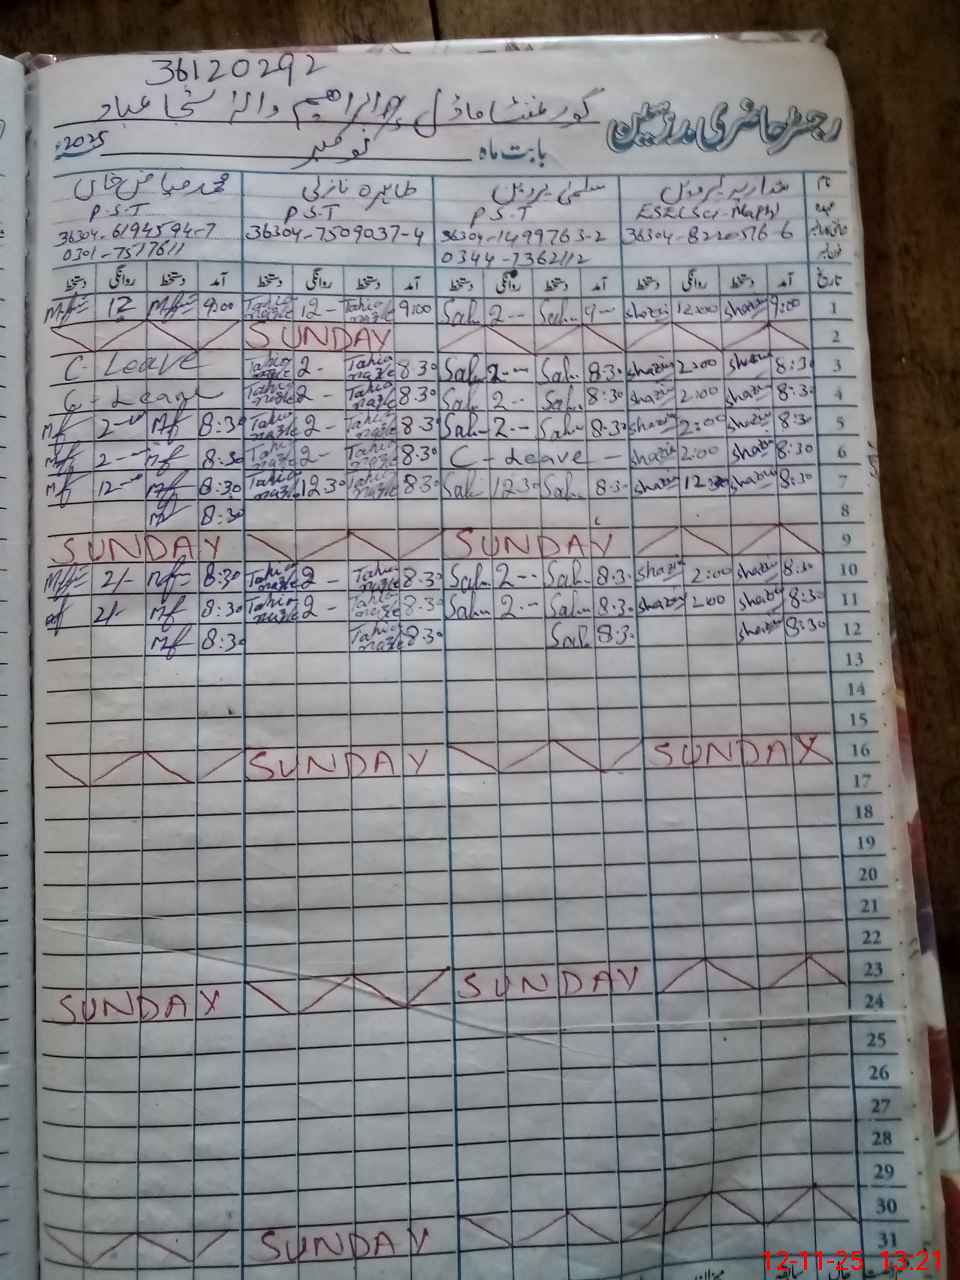 36120292
رجسٹر حاضری مدرسین
گورنمنٹ ماڈل پرائمری
بابت ماہ نومبر 2025
نام شازیہ پروین سلمیٰ پروین طاہرہ نازلی محمد فیاض خان
عہدہ ESE(Sci-Math) P.S.T P.S.T P.S.T
36304-8220516-6 36304-1499763-2 36304-7509037-4 36304-6194594-7
0344-7362112 0301-7517611
تاریخ آمد دستخط روانگی دستخط آمد دستخط روانگی دستخط آمد دستخط روانگی دستخط آمد دستخط روانگی دستخط
Mf 12 Mf 9:00 Tahira nazle 12- Tahira nazle 9:00 Sal 2-- Sal 9-- Shazia 12:00 Shazia 9:00 1
SUNDAY 2
C-Leave Tahira nazle 2- Tahira nazle 8.30 Sal 2-- Sal 8.30 Shazia 2:00 Shazia 8:30 3
C-Leave Tahira nazle 2- Tahira nazle 8.30 Sal 2-- Sal 8:30 Shazia 2:00 Shazia 8:30 4
Mf 2-- Mf 8:30 Tahira nazle 2- Tahira nazle 8.30 Sal 2-- Sal 8.30 Shazia 2:00 Shazia 8:30 5
Mf 2-- Mf 8:30 Tahira nazle 2- Tahira nazle 8.30 C-Leave - Shazia 2:00 Shazia 8:30 6
Mf 12-- Mf 8:30 Tahira nazle 12.30 Tahira nazle 8.30 Sal 12.30 Sal 8.30 Shazia 12:30 Shazia 8:30 7
Mf 8:30 8
SUNDAY SUNDAY 9
Mf 2/- Mf 8:30 Tahira nazle 2- Tahira nazle 8.30 Sal 2-- Sal 8.30 Shazia 2:00 Shazia 8:30 10
Mf 2/- Mf 8:30 Tahira nazle 2- Tahira nazle 8.30 Sal 2-- Sal 8.30 Shazia 2:00 Shazia 8:30 11
Mf 8:30 Tahira nazle 8.30 Sal 8.30 Shazia 8:30 12
13
14
15
SUNDAY SUNDAY 16
17
18
19
20
21
22
SUNDAY SUNDAY 23
24
25
26
27
28
29
30
SUNDAY 31
12-11-25 13:21